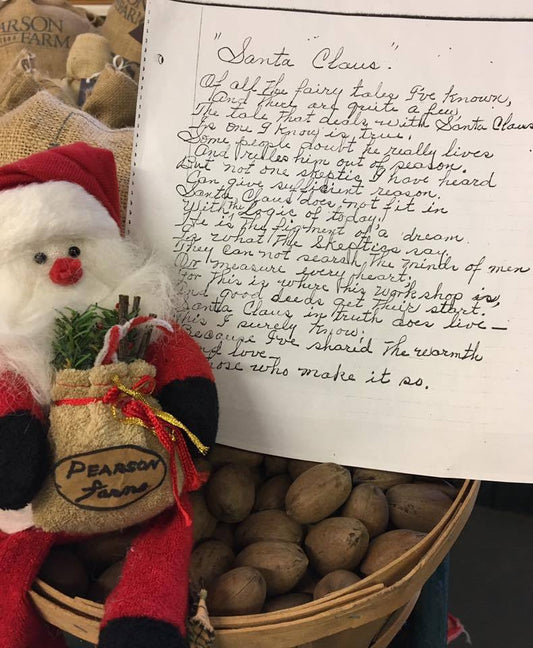 PEARSON
FARM
"Santa Claus".
Of all the fairy tales I've known,
And there are quite a few,
The tale that deals with Santa Claus
Is one I know is true.
Some people doubt he really lives
And rules him out of season.
But not one skeptic I have heard
Can give sufficient reason.
Santa Claus does not fit in
With the Logic of today.
He is the figment of a dream
Is what the Skeptics say.
They can not search the minds of men
Or measure every heart.
For this is where this workshop is,
and good deeds get their start.
Santa Claus in truth does live—
This I surely know.
Because I've shared the warmth
and love—
those who make it so.
PEARSON
farms